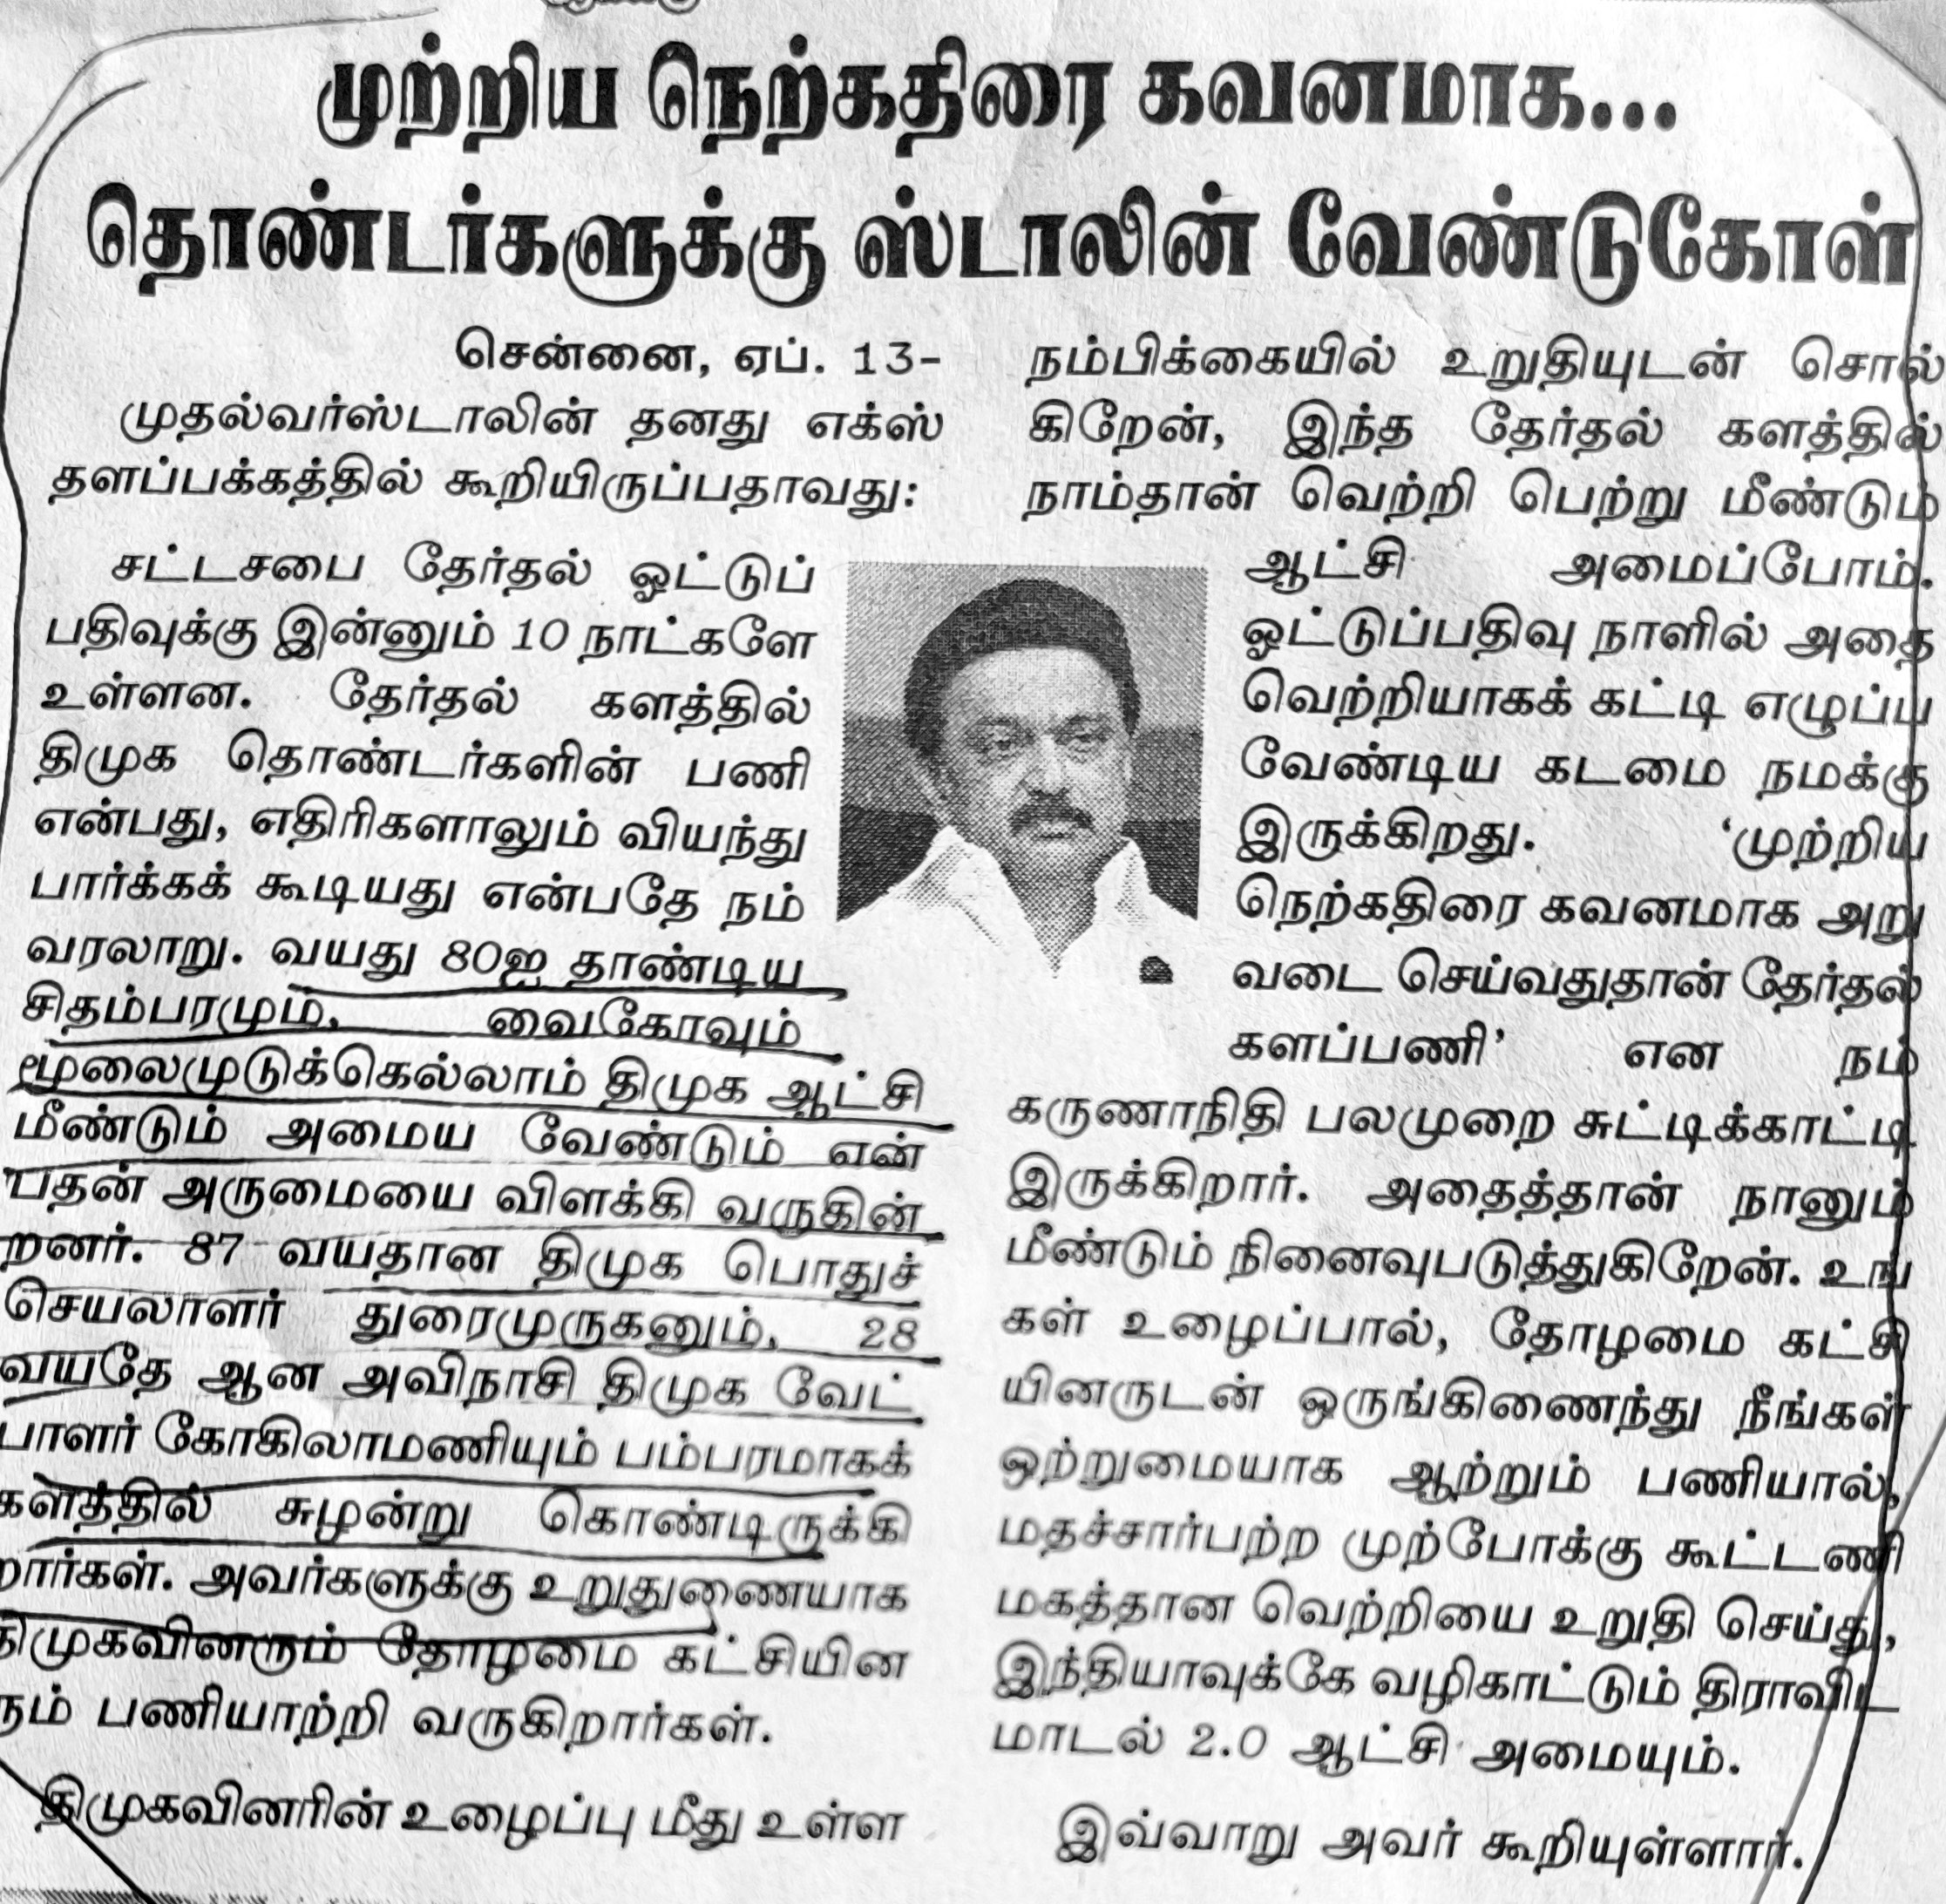 முற்றிய நெற்கதிரை கவனமாக...
தொண்டர்களுக்கு ஸ்டாலின் வேண்டுகோள்
சென்னை, ஏப். 13-
முதல்வர்ஸ்டாலின் தனது எக்ஸ்
தளப்பக்கத்தில் கூறியிருப்பதாவது:
சட்டசபை தேர்தல் ஓட்டுப்
பதிவுக்கு இன்னும் 10 நாட்களே
உள்ளன. தேர்தல் களத்தில்
திமுக தொண்டர்களின் பணி
என்பது, எதிரிகளாலும் வியந்து
பார்க்கக் கூடியது என்பதே நம்
வரலாறு. வயது 80ஐ தாண்டிய
சிதம்பரமும், வைகோவும்
மூலைமுடுக்கெல்லாம் திமுக ஆட்சி
மீண்டும் அமைய வேண்டும் என்
பதன் அருமையை விளக்கி வருகின்
றனர். 87 வயதான திமுக பொதுச்
செயலாளர் துரைமுருகனும், 28
வயதே ஆன அவிநாசி திமுக வேட்
பாளர் கோகிலாமணியும் பம்பரமாகக்
களத்தில் சுழன்று கொண்டிருக்கி
றார்கள். அவர்களுக்கு உறுதுணையாக
திமுகவினரும் தோழமை கட்சியின
ரும் பணியாற்றி வருகிறார்கள்.
திமுகவினரின் உழைப்பு மீது உள்ள
நம்பிக்கையில் உறுதியுடன் சொல்
கிறேன், இந்த தேர்தல் களத்தில்
நாம்தான் வெற்றி பெற்று மீண்டும்
ஆட்சி அமைப்போம்.
ஓட்டுப்பதிவு நாளில் அதை
வெற்றியாகக் கட்டி எழுப்ப
வேண்டிய கடமை நமக்கு
இருக்கிறது. ‘முற்றிய
நெற்கதிரை கவனமாக அறு
வடை செய்வதுதான் தேர்தல்
களப்பணி’ என நம்
கருணாநிதி பலமுறை சுட்டிக்காட்டி
இருக்கிறார். அதைத்தான் நானும்
மீண்டும் நினைவுபடுத்துகிறேன். உங்
கள் உழைப்பால், தோழமை கட்சி
யினருடன் ஒருங்கிணைந்து நீங்கள்
ஒற்றுமையாக ஆற்றும் பணியால்,
மதச்சார்பற்ற முற்போக்கு கூட்டணி
மகத்தான வெற்றியை உறுதி செய்து,
இந்தியாவுக்கே வழிகாட்டும் திராவிட
மாடல் 2.0 ஆட்சி அமையும்.
இவ்வாறு அவர் கூறியுள்ளார்.